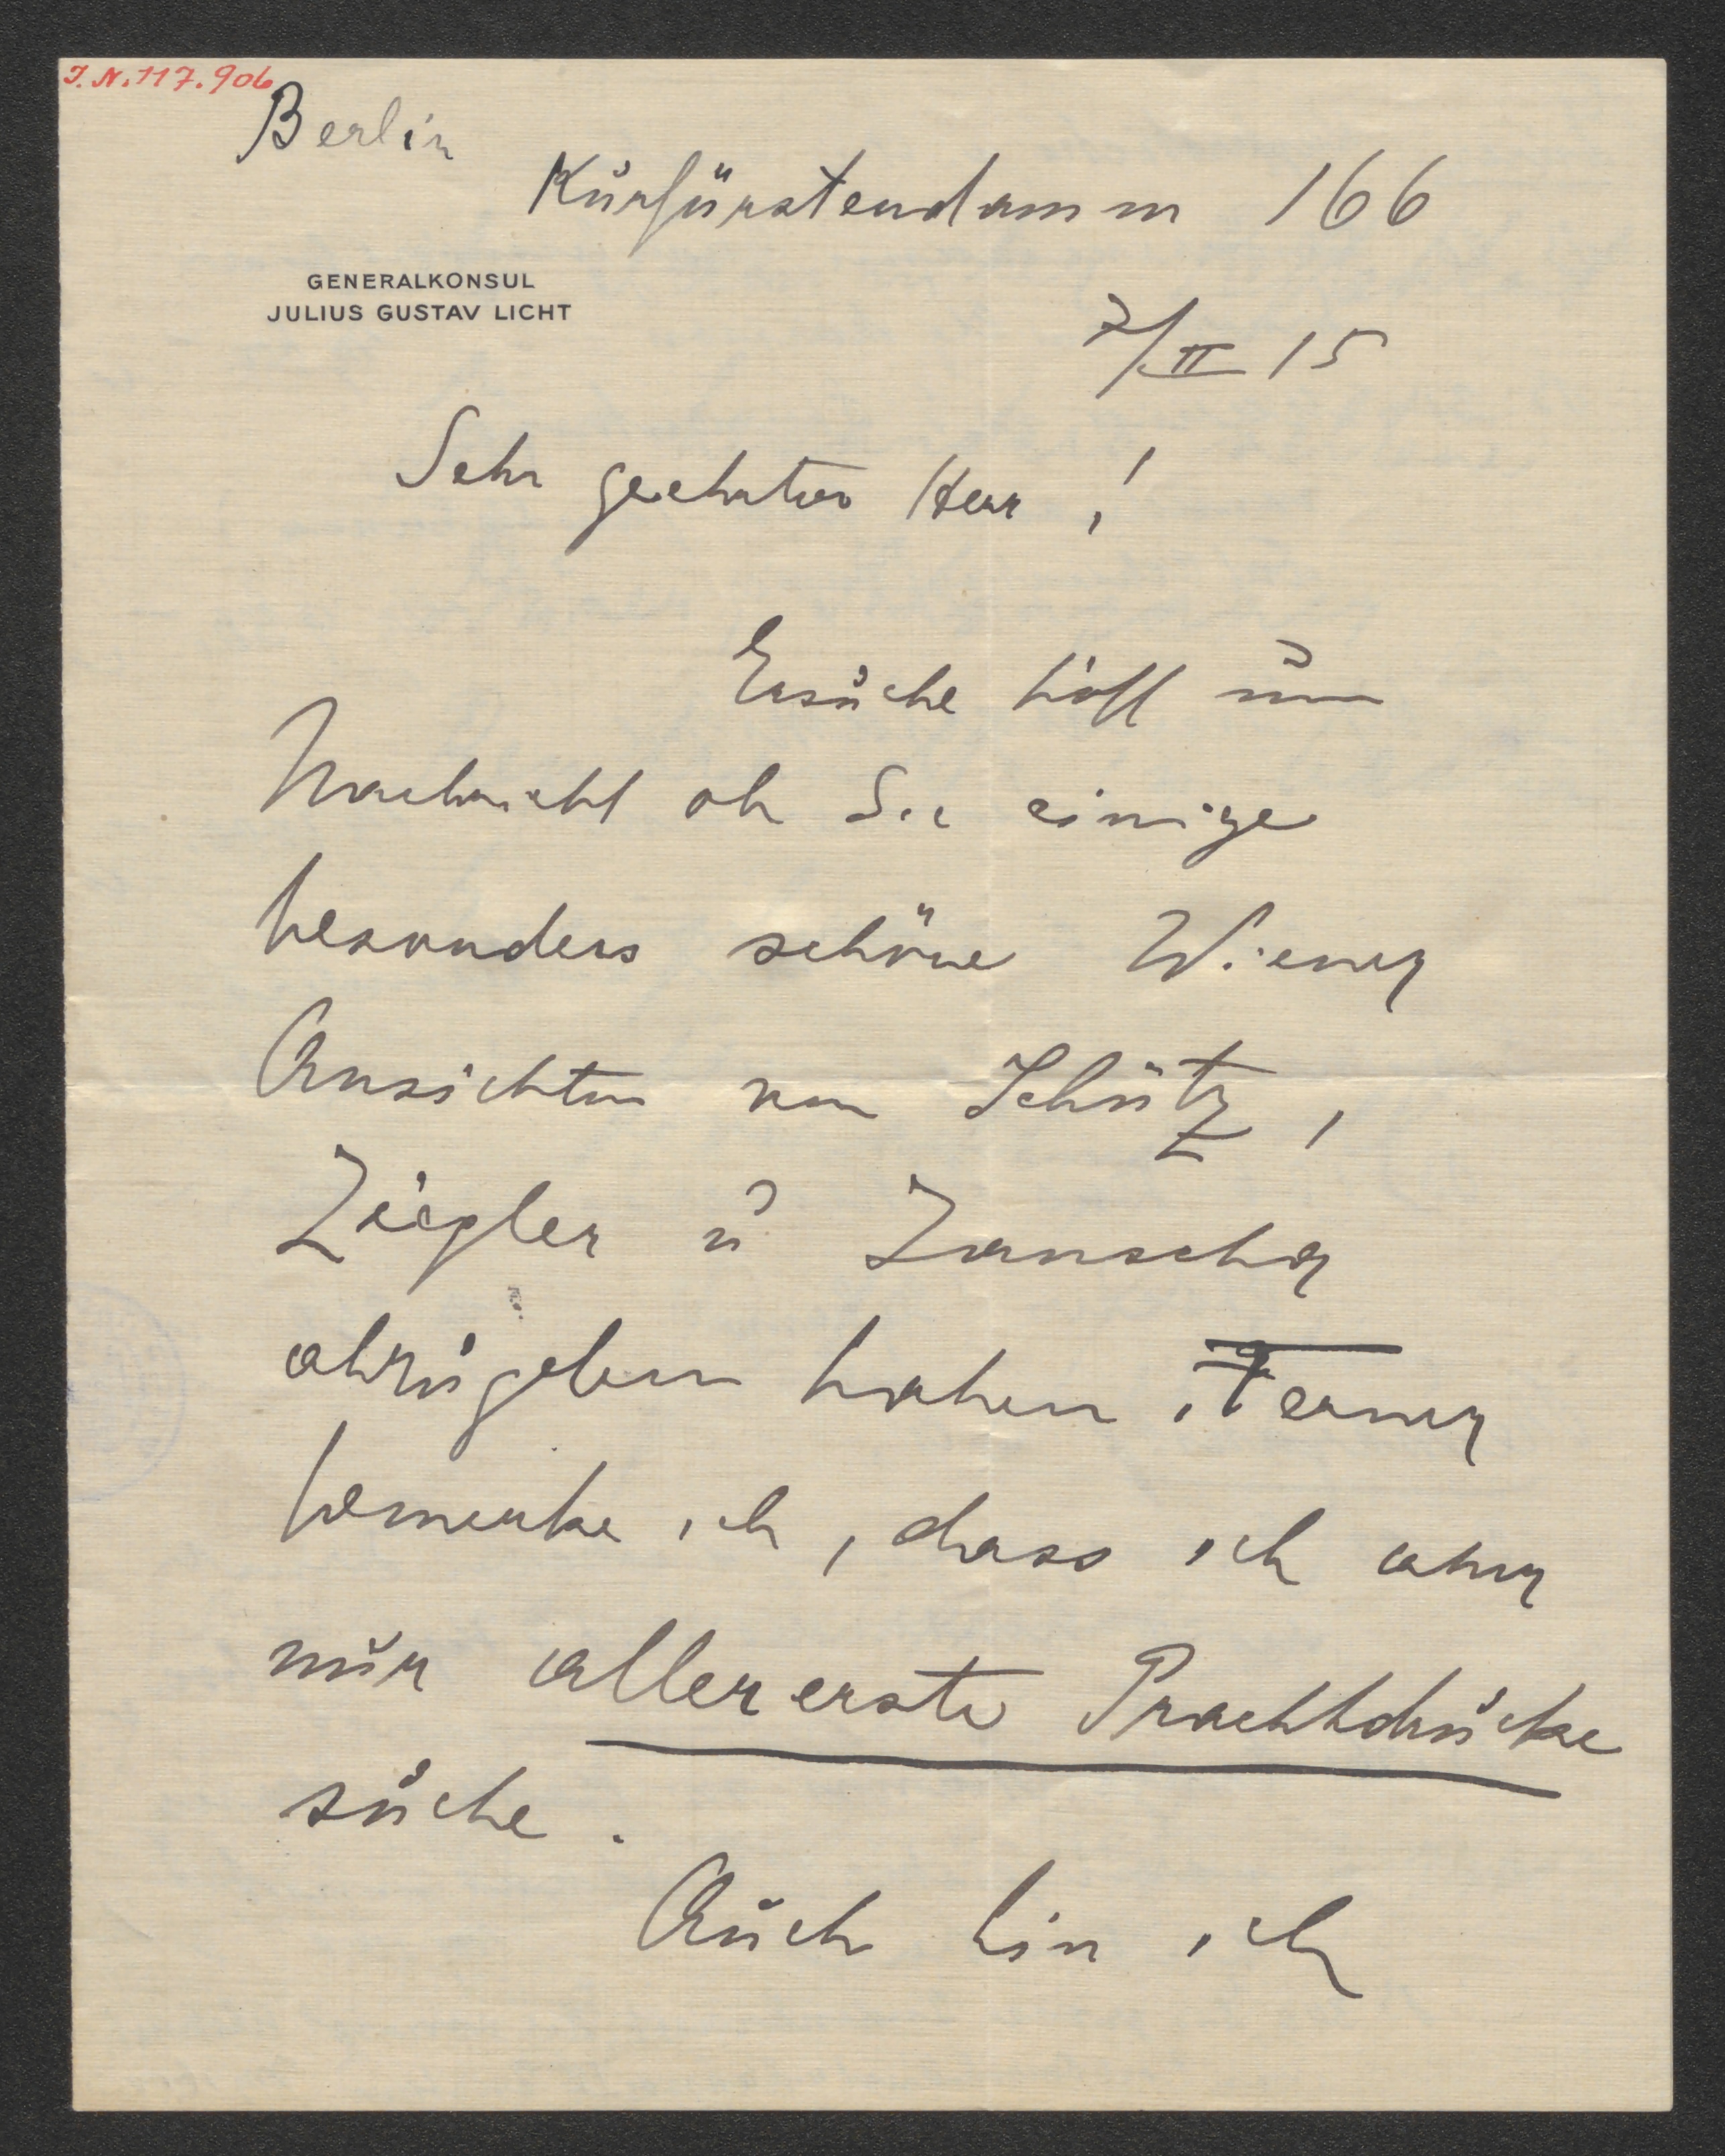 J.N. 117.906
Berlin
Kurfürstendamm 166
GENERALKONSUL
JULIUS GUSTAV LICHT
7/II 15
Sehr geehrter Herr !
Ersuche höfl um
Nachricht ob Sie einige
besonders schöne Wiener
Ansichten von Schütz,
Ziegler u Janscha
abzugeben haben. Ferner
bemerke ich, dass ich aber
nur allererste Prachtdrücke
suche.
Auch bin ich